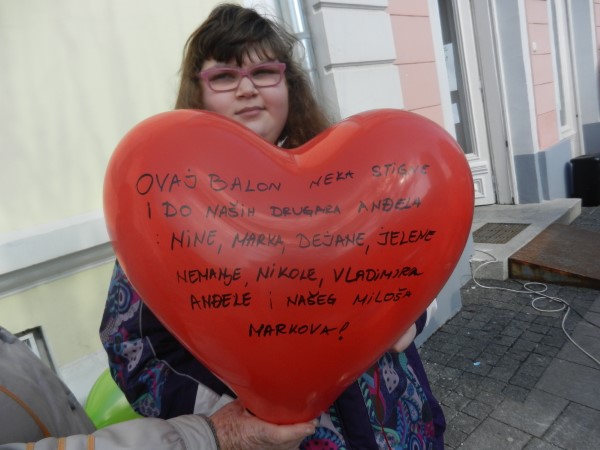 OVAJ BALON NEKA STIGNE
I DO NAŠIH DRUGARA ANĐELA
: NINE, MARKA, DEJANE, JELENE
NEMANJE, NIKOLE, VLADIMIRA
ANĐELE I NAŠEG MILOŠA
MARKOVA!